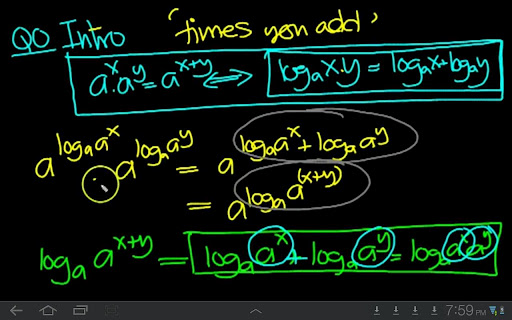 QO Intro 'times you add'
a^x · a^y = a^(x+y) ⟺ log_a x·y = log_a x + log_a y
a^(log_a a^x) · a^(log_a a^y) = a^(log_a a^x + log_a a^y)
= a^(log_a a^(x+y))
log_a a^(x+y) = log_a a^x + log_a a^y = log_a a^x a^y
7:59 PM